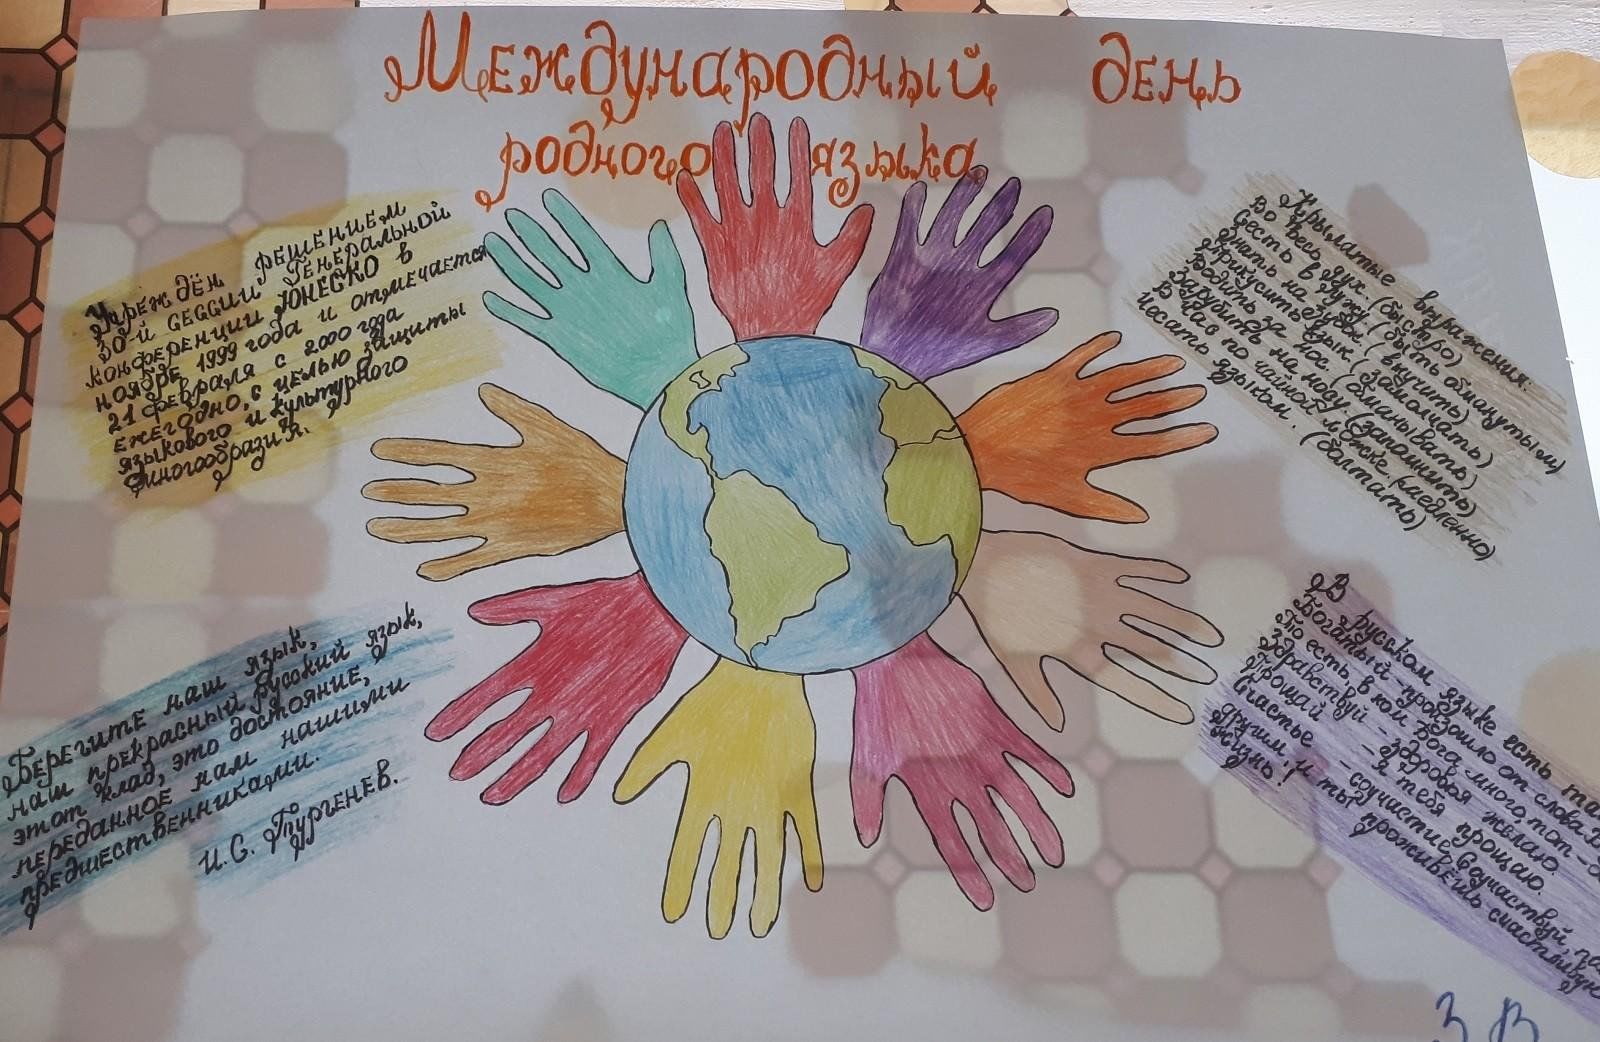 Международный день
родного языка
Учреждён решением
30-й сессии Генеральной
конференции ЮНЕСКО в
ноябре 1999 года и отмечается
21 февраля с 2000 года
ежегодно, с целью защиты
языкового и культурного
многообразия.
Крылатые выражения:
Во весь дух. (быстро)
Сесть в лужу. (быть обманутым)
Знать на зубок. (выучить)
Прикусить язык. (замолчать)
Водить за нос. (обманывать)
Зарубить на носу. (запомнить)
В час по чайной ложке (медленно)
Чесать языком. (болтать)
Берегите наш язык,
наш прекрасный русский язык,
этот клад, это достояние,
переданное нам нашими
предшественниками.
И.С. Тургенев.
В русском языке есть
Богатый - произошло от слова
То есть, в ком Бога много, тот -
Здравствуй - здоровья желаю.
Прощай - я тебя прощаю.
Счастье - соучастие. Соучаствуй,
другим и ты проживёшь
жизнь!
3 В